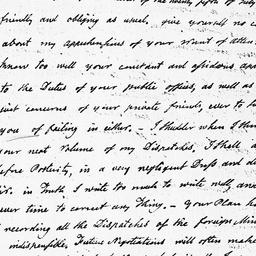 of the twenty fifth of July
friendly and obliging as usual, give yourself no
about my apprehensions of your want of atten
know too well your constant and assiduous
to the Duties of your public offices, as well as
just concerns of your private friends, ever to
you of failing in either. — I shudder when I thin
your next Volume of my Dispatches, I shall a
before Posterity, in a very negligent Dress and
Air. in Truth I write too much to write well, and
never time to correct any Thing. — Your Plan
recording all the Dispatches of the foreign Min
indispensible, Future Negotiations will often make